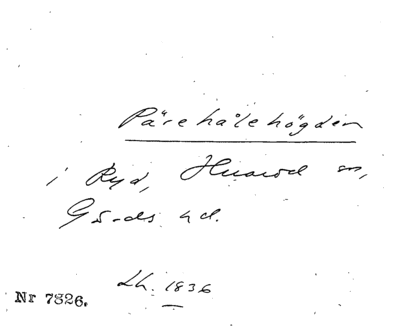 Pärehålehögden
i Ryd, Huaröd sn,
Gärds hd.
Lh. 1836
Nr 7326.